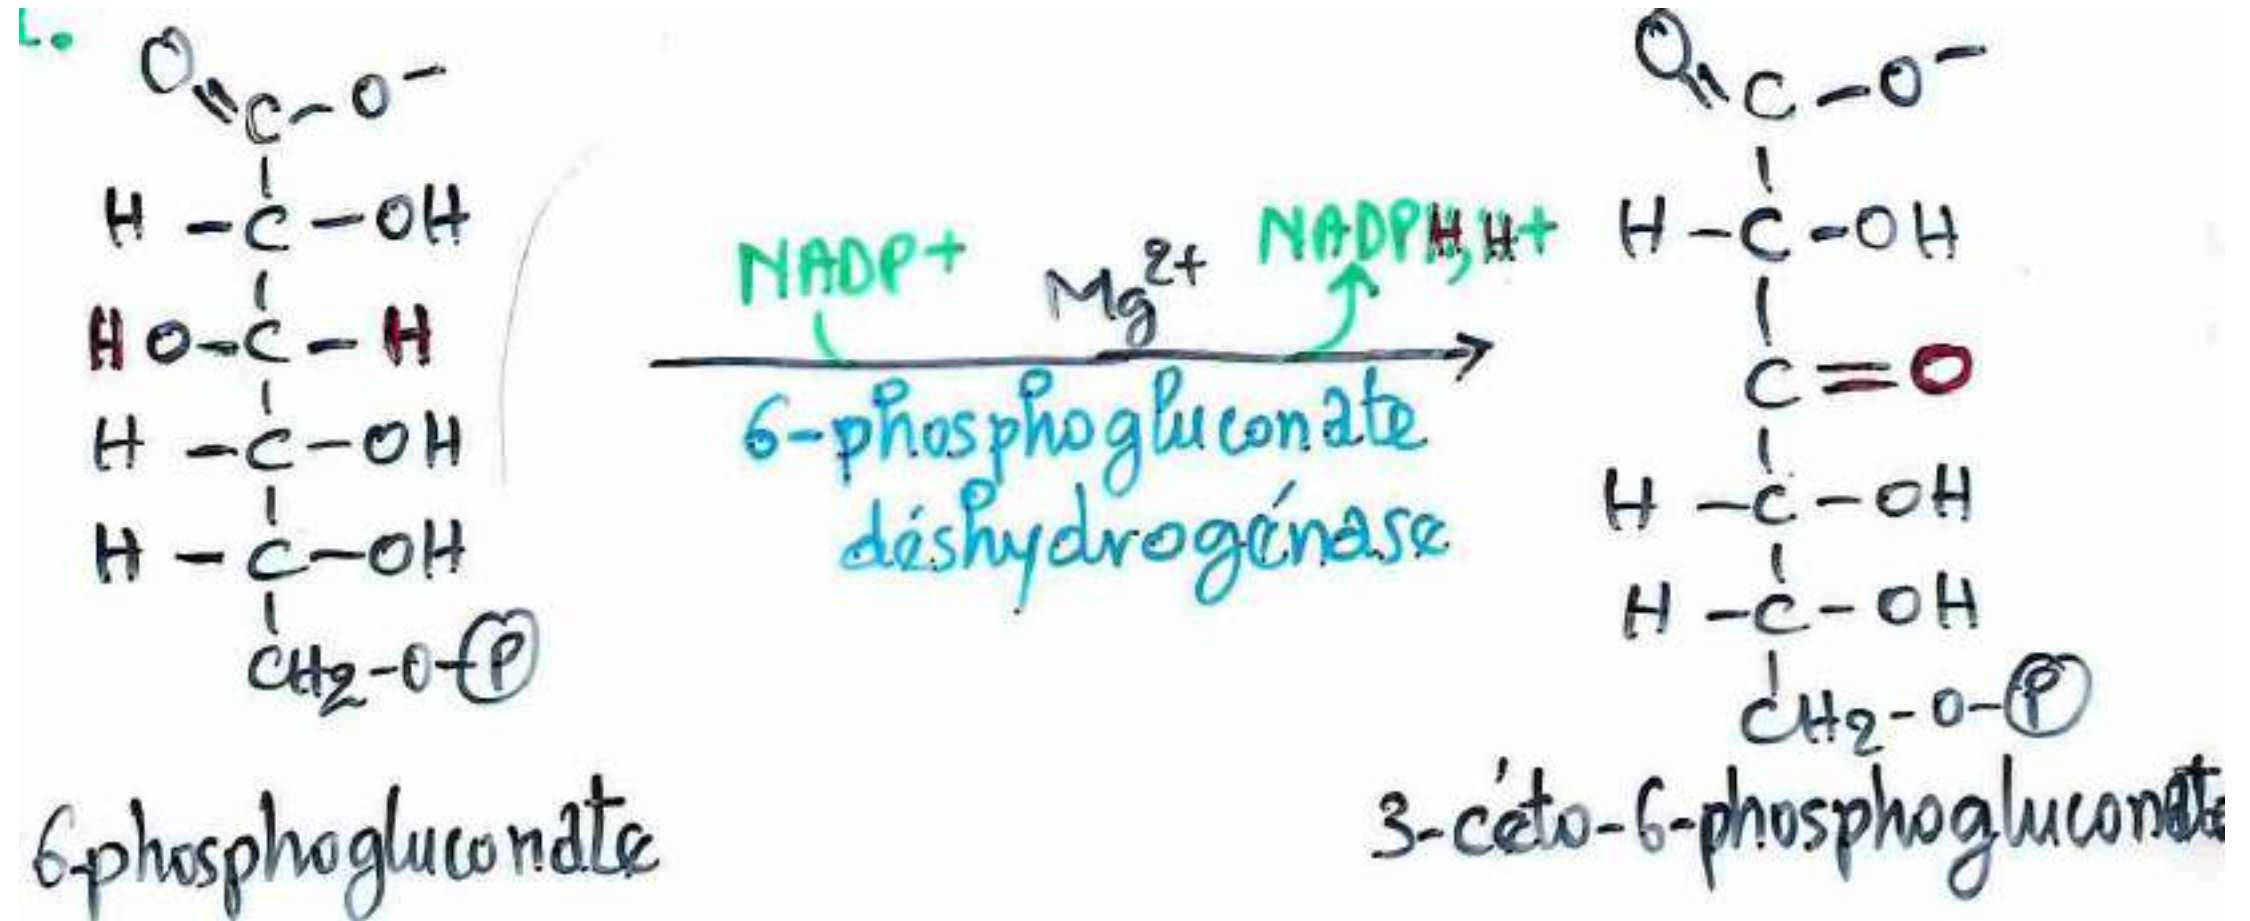 O=C-O-
H-C-OH
HO-C-H
H-C-OH
H-C-OH
CH2-O-P
6-phosphogluconate
NADP+
Mg2+
NADPH,H+
6-phosphogluconate
déshydrogénase
O=C-O-
H-C-OH
C=O
H-C-OH
H-C-OH
CH2-O-P
3-céto-6-phosphogluconate